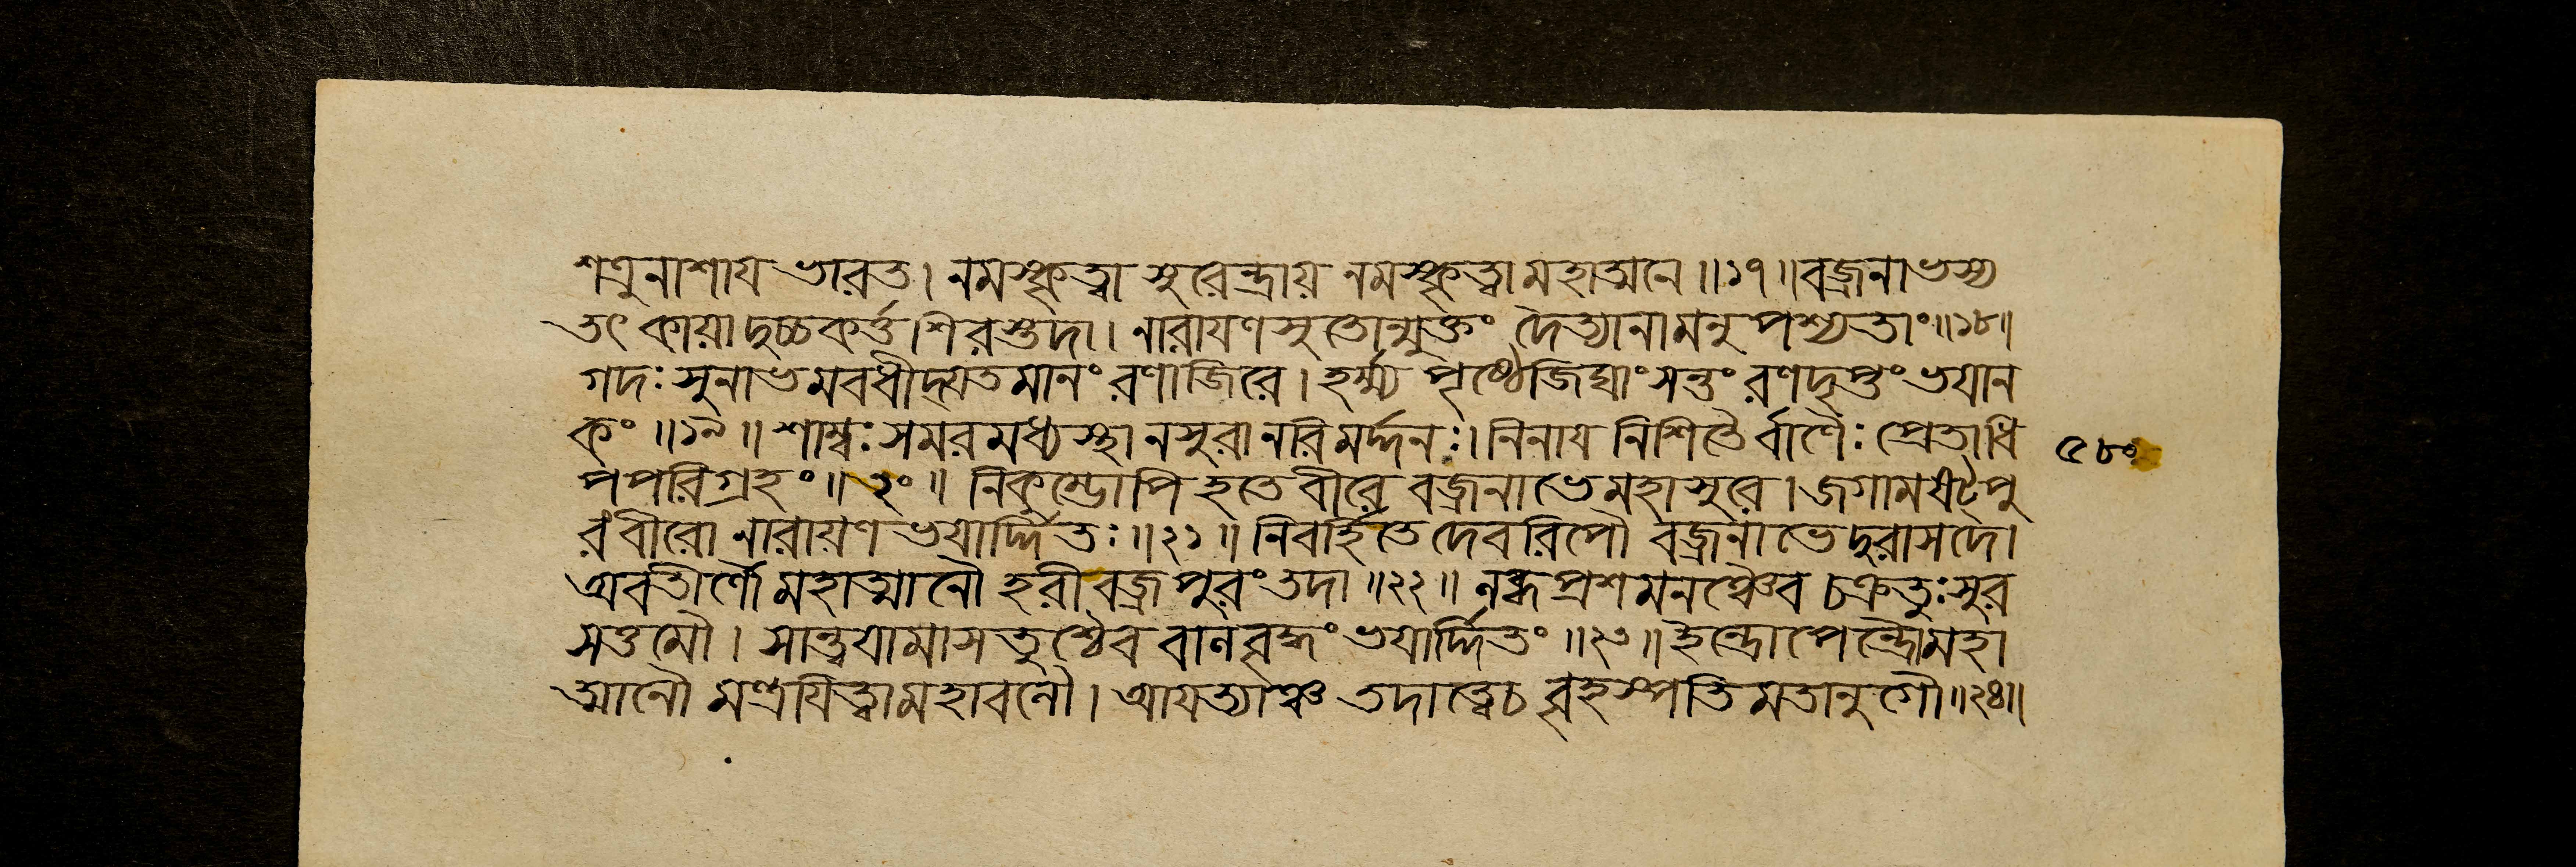 শত্রুনাশায ভারত। নমস্কৃত্বা সুরেন্দ্রায় নমস্কৃত্বা মহাত্মনে॥১৭॥বজ্রনাভস্য
তৎ কায়াদুচ্চকর্ত্ত শিরস্তদা। নারাযণসুতোন্মুক্তং দৈত্যানামনুপশ্যতাং॥১৮॥
গদঃ সুনাভমবধীদ্যতমানং রণাজিরে। হর্ম্ম্য পৃষ্ঠে জিঘাংসন্তং রণদৃপ্তং ভযান
কং॥১৯॥ শাম্বঃ সমরমধ্যস্থানসুরানরিমর্দ্দনঃ। নিনায নিশিতৈর্বাণৈঃ প্রেতাধি
পপরিগ্রহং॥২০॥ নিকুম্ভোপি হতে বীরে বজ্রনাভে মহাসুরে। জগাম ষট্পু
রং বীরো নারায়ণ ভযার্দ্দিতঃ॥২১॥ নিবর্হিতে দেবরিপৌ বজ্রনাভে দুরাসদে।
অবতীর্ণৌ মহাত্মানৌ হরী বজ্রপুরং তদা॥২২॥ লব্ধপ্রশমনঞ্চৈব চক্রতুঃ সুর
সত্তমৌ। সান্ত্বযামাসতুশ্চৈব বালবৃদ্ধং ভযার্দ্দিতং॥২৩॥ ইন্দ্রোপেন্দ্রৌ মহা
ত্মানৌ মন্ত্রযিত্বা মহাবলৌ। আযত্যাঞ্চ তদাত্বেচ বৃহস্পতিমতানুগৌ॥২৪॥
৫৮০